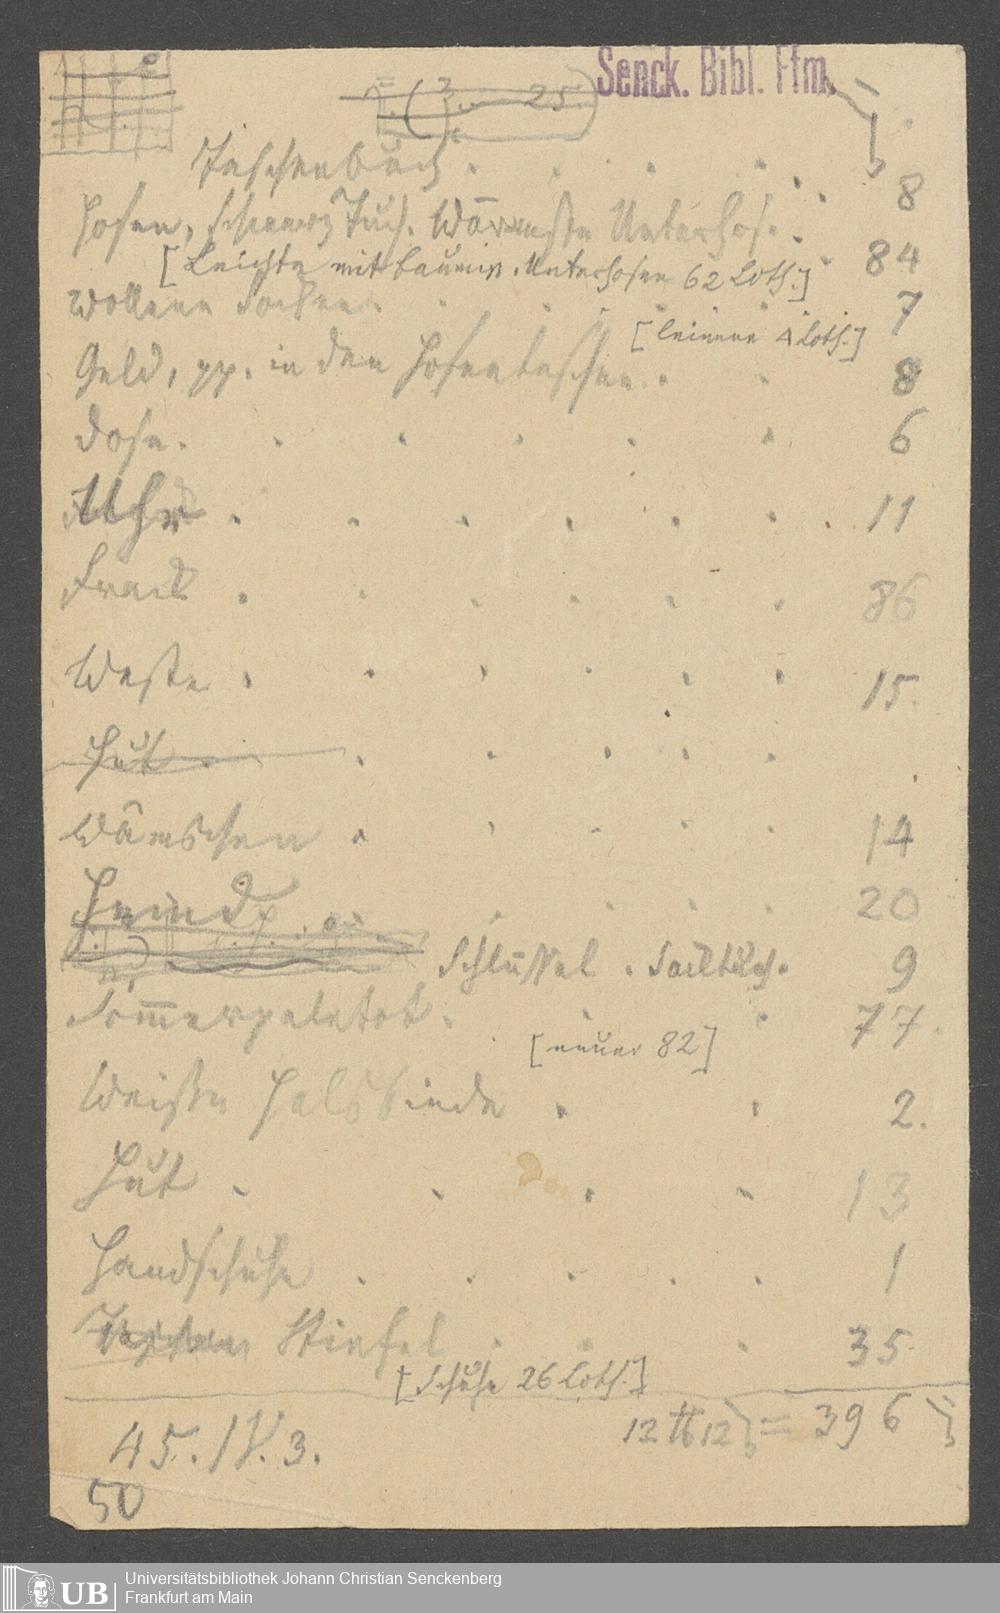 Senck. Bibl. Ffm.
25.
Taschenbuch . . . . . . 8
Hosen, schwarz Tuch. Wärmste Unterhos. . 84
[Leichte mit baumw. Unterhosen 62 Loth.]
Wollene Socken. . . . . 7
[leinene 4 Loth.]
Geld, pp. in den Hosentaschen. . . 8
Dose. . . . . . 6
Uhr . . . . . . . 11
Frack . . . . . . 86
Weste . . . . . . 15.
Hut . . . . . .
Wämschen . . . . . 14
Hemd . . . . 20
Schlüssel . Sacktuch. 9
Sommerpaletot. . . 77.
[neuer 82]
Weisse Halsbinde . . 2.
Hut . . . . 13
Handschuhe . . . . . 1
Stiefel . . . 35.
[Schuhe 26 Loth.]
12 ℔ 12 = 396
45. IV. 3.
50
UB Universitätsbibliothek Johann Christian Senckenberg
Frankfurt am Main